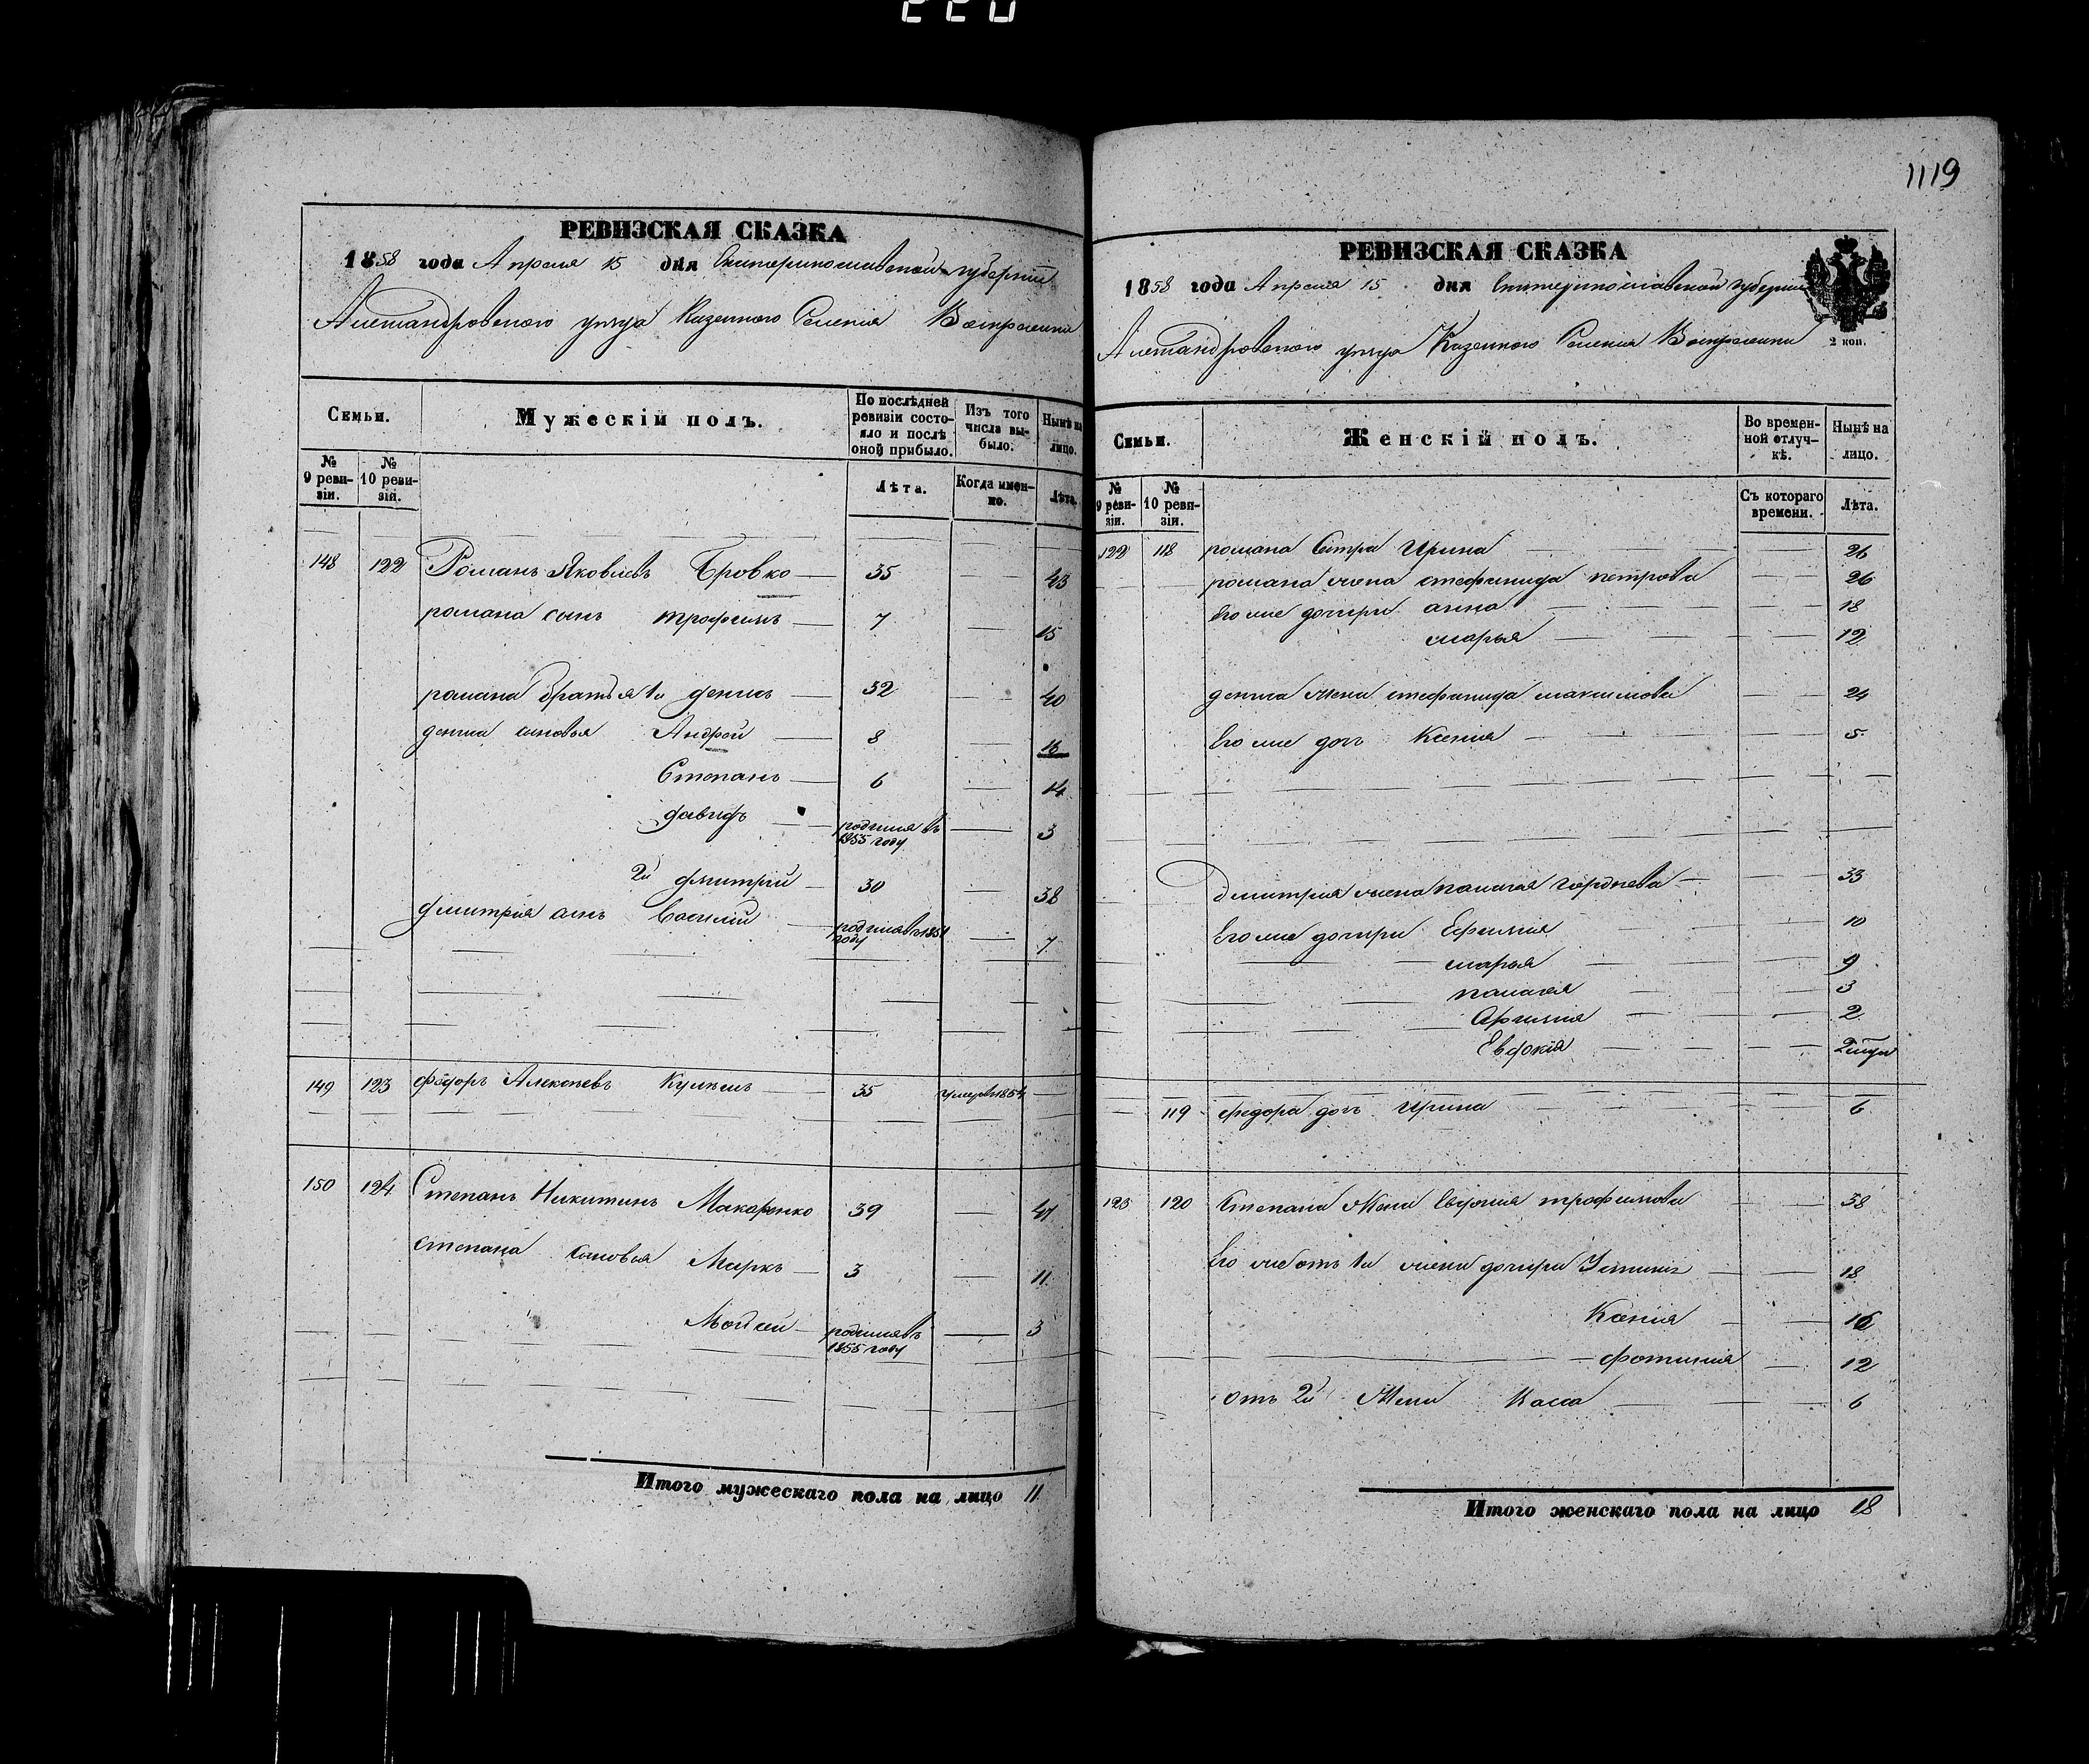 220
1119
РЕВИЗСКАЯ СКАЗКА
1858 года Апреля 15 дня Екатеринославской губернии
Александровского уезда Казенного Селения Воскресенки
Семьи.
Мужескій полъ.
По послѣдней ревизіи состояло и послѣ оной прибыло.
Изъ того числа выбыло.
Нынѣ на лицо.
№ 9 ревизіи.
№ 10 ревизіи.
Лѣта.
Когда именно.
Лѣта.
148 122 Романъ Яковлевъ Бровко 35 43
романа сынъ трофимъ 7 15
романа братья 1й денисъ 32 40
дениса сыновья Андрей 8 16
Степанъ 6 14
давидъ родился въ 1855 году 3
2й дмитрій 30 38
дмитрия сынъ Василій родился в 1851 году 7
149 123 Фёдоръ Алексѣевъ 35 умеръ 1854
150 124 Степанъ Никитинъ Макаренко 39 47
степана сыновья Маркъ 3 11
Моисей родился въ 1855 году 3
Итого мужескаго пола на лицо 11
РЕВИЗСКАЯ СКАЗКА
1858 года Апреля 15 дня Екатеринославской губернии
Александровского уезда Казенного Селения Воскресенки
2 коп.
Семьи.
Женскій полъ.
Во временной отлучкѣ.
Нынѣ на лицо.
№ 9 ревизіи.
№ 10 ревизіи.
Съ котораго времени.
Лѣта.
122 118 романа Сестра Ирина 26
романа жена стефанида петрова 26
Его же дочери анна 18
марья 12
дениса жена стефанида максимова 24
Его же дочь Ксения 5
Дмитрия жена палагея гордеева 33
Его же дочери Ефимия 10
марья 9
палагея 3
Афимия 2
Евдокія
119 федора дочь Ирина 6
123 120 Степана Жена Евдокия трофимова 38
Его же отъ 1й жены дочери 18
Ксения 16
фотиния 12
отъ 2й Жены Васса 6
Итого женскаго пола на лицо 18